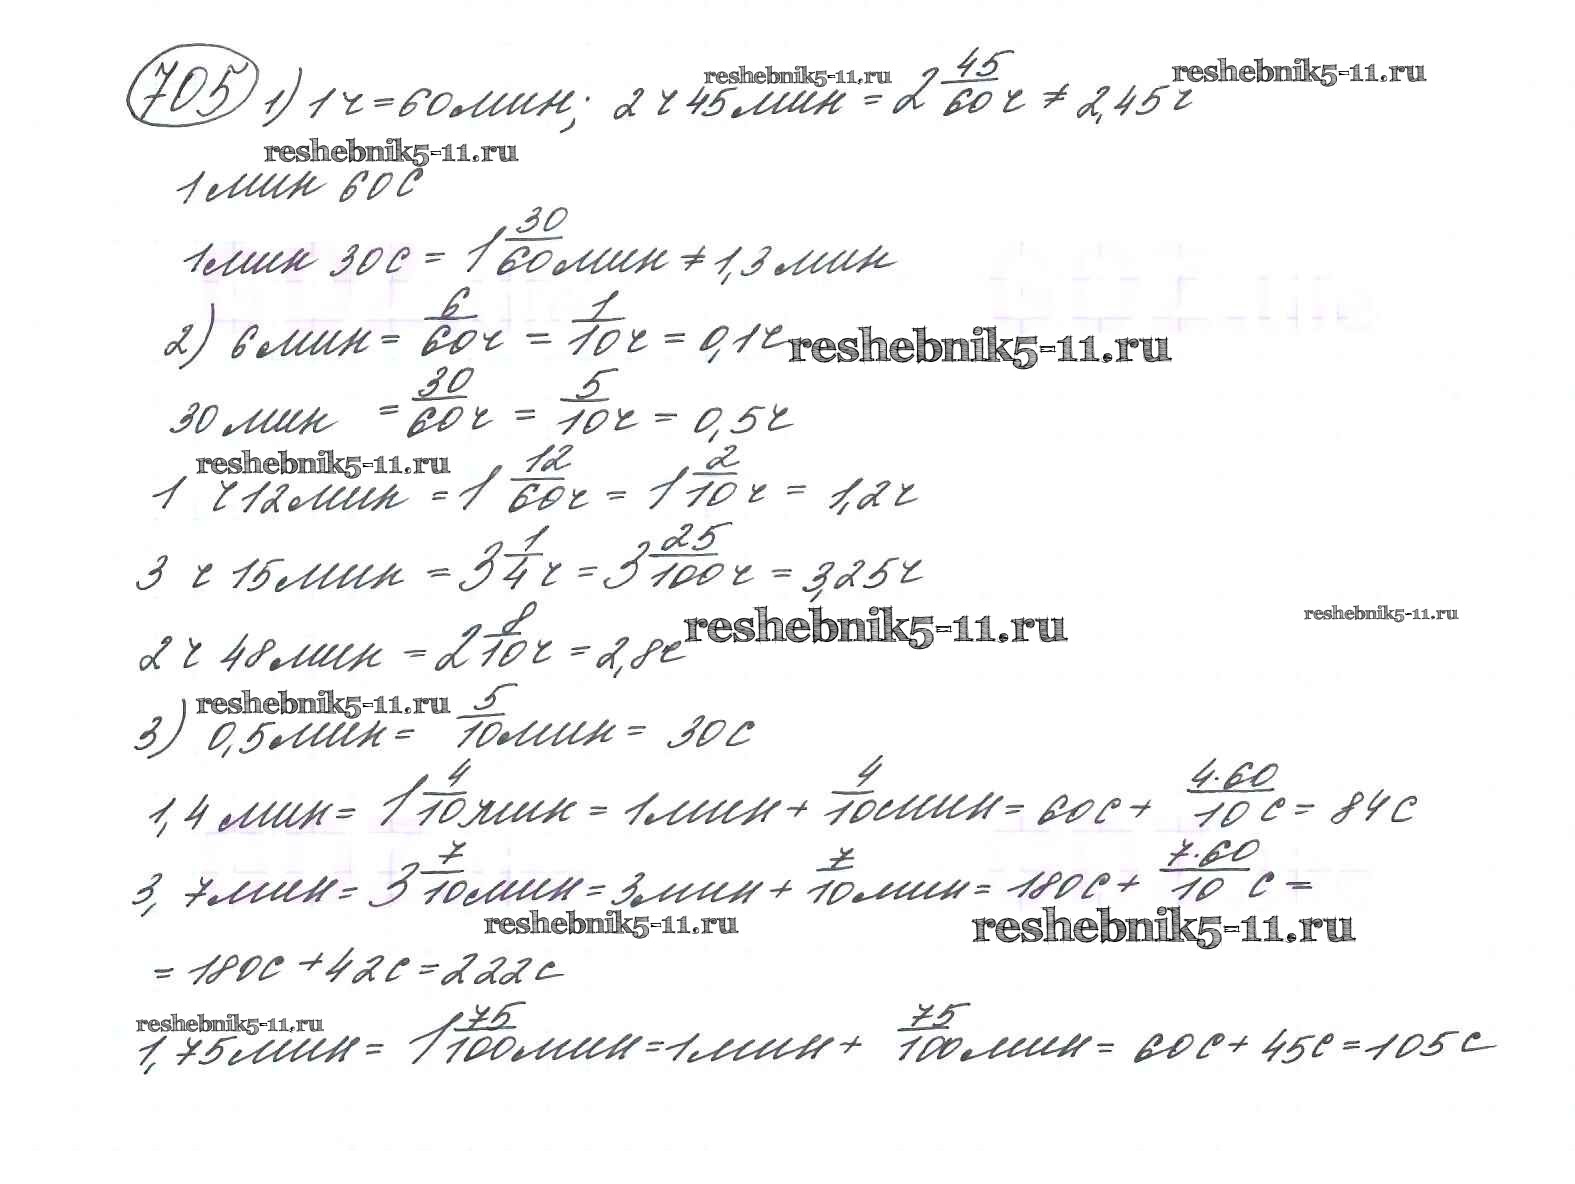 705 1) 1ч = 60мин; 2 ч 45мин = 2 45/60 ч ≠ 2,45ч
reshebnik5-11.ru reshebnik5-11.ru
reshebnik5-11.ru
1мин 60с
1мин 30с = 1 30/60 мин ≠ 1,3мин
2) 6мин = 6/60 ч = 1/10 ч = 0,1ч
reshebnik5-11.ru
30мин = 30/60 ч = 5/10 ч = 0,5ч
reshebnik5-11.ru
1 ч12мин = 1 12/60 ч = 1 2/10 ч = 1,2ч
3 ч 15мин = 3 1/4 ч = 3 25/100 ч = 3,25ч
reshebnik5-11.ru reshebnik5-11.ru
2 ч 48мин = 2 8/10 ч = 2,8ч
reshebnik5-11.ru
3) 0,5мин = 5/10 мин = 30с
1,4мин = 1 4/10 мин = 1мин + 4/10 мин = 60с + 4·60/10 с = 84с
3,7мин = 3 7/10 мин = 3мин + 7/10 мин = 180с + 7·60/10 с =
reshebnik5-11.ru reshebnik5-11.ru
= 180с + 42с = 222с
reshebnik5-11.ru
1,75мин = 1 75/100 мин = 1мин + 75/100 мин = 60с + 45с = 105с